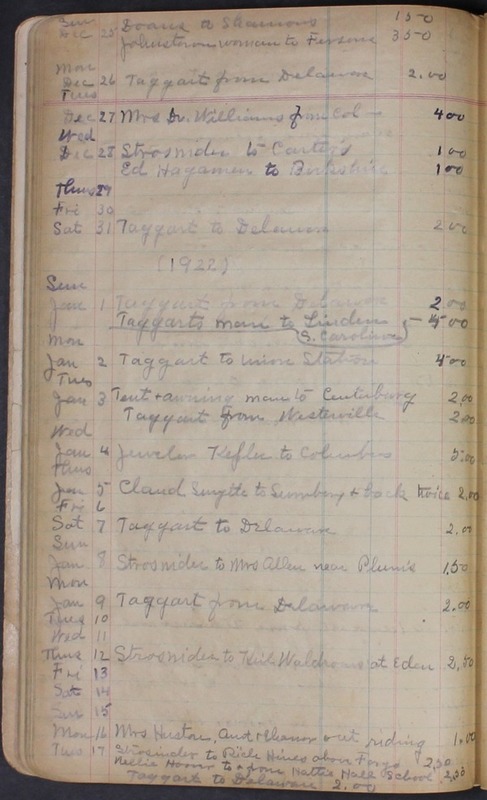 Sun
Dec 25 Doane to Shannons 1 50
Johnstown woman to Fersons 3 50
Mon
Dec 26 Taggart from Delaware 2.00
Tues
Dec 27 Mrs Dr. Williams from Col- 4 00
Wed
Dec 28 Strosnider to Carter's 1 00
Ed Hagamon to Berkshire 1 00
Thurs 29
Fri 30
Sat 31 Taggart to Delaware 2 00
(1922)
Sun
Jan 1 Taggart from Delaware 2.00
Taggarts man to Linden - 00
S. Carolina
Mon
Jan 2 Taggart to Union Station 4 00
Tues
Jan 3 Tent + awning man to Centerburg 2.00
Taggart from Westerville 2 00
Wed
Jan 4 Jeweler Kefler to Columbus 5.00
Thurs
Jan 5 Claud Smythe to Sunbury + back twice 2.00
Fri 6
Sat 7 Taggart to Delaware 2.00
Sun
Jan 8 Strosnider to Mrs Allen near Plum's 1.50
Mon
Jan 9 Taggart from Delaware 2.00
Tues 10
Wed 11
Thurs 12 Strosnider to Waldrons at Eden 2.50
Fri 13
Sat 14
Sun 15
Mon 16 Mrs Huston, Aunt Eleanor out riding 1.00
Tues 17 Strosnider to Hines above Fargo 2.50
Nellie Hoover to + from Hattie Hall School 2.50
Taggart to Delaware 2.00